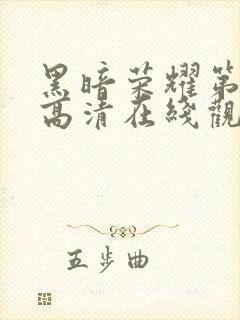 黑暗荣耀第
高清在线觀
五步曲